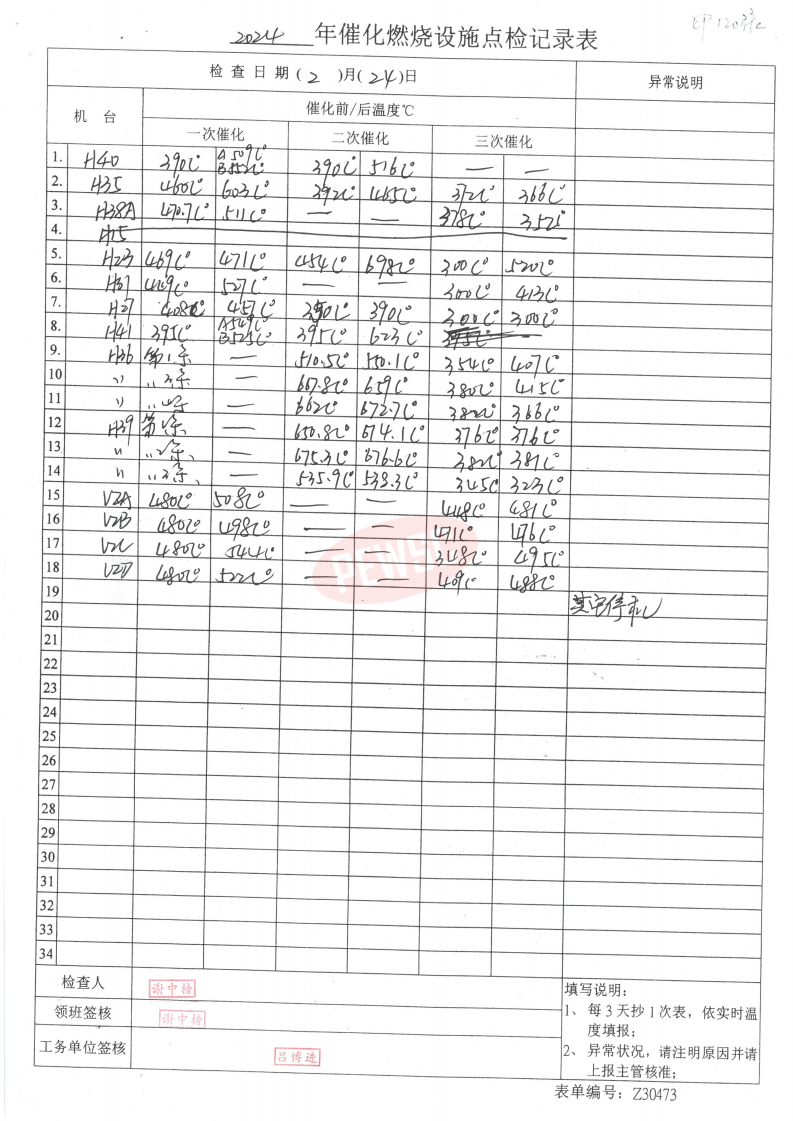 2024 年催化燃烧设施点检记录表
检 查 日 期（2 ）月（24）日 异常说明
机 台 催化前/后温度℃
一次催化 二次催化 三次催化
1. H40 390℃ A 509℃ B 552℃ 390℃ 516℃ — —
2. H35 460℃ 603℃ 392℃ 465℃ 372℃ 366℃
3. H38A 470.7℃ 511℃ — — 378℃ 352℃
4. H15
5. H23 469℃ 471℃ 454℃ 698℃ 300℃ 520℃
6. H31 449℃ 527℃ — — 300℃ 413℃
7. H27 408℃ 457℃ 390℃ 300℃ 300℃
8. H41 395℃ A549℃ B525℃ 395℃ 623℃
9. H36 第1条 — 510.5℃ 550.1℃ 354℃ 407℃
10 〃 〃2条 — 667.8℃ 659℃ 380℃ 415℃
11 〃 — 662℃ 672.7℃ 382℃ 366℃
12 H39 — 650.8℃ 674.1℃ 376℃ 376℃
13 〃 〃2条 — 675.3℃ 676.6℃ 382℃ 381℃
14 〃 〃3条 — 535.9℃ 538.3℃ 345℃ 323℃
15 V2A 480℃ 508℃ — — 448℃ 481℃
16 V2B 480℃ 498℃ — — 471℃ 476℃
17 V2C 480℃ 544℃ — — 348℃ 495℃
18 V2D 480℃ 522℃ — — 409℃ 488℃
19
20
21
22
23
24
25
26
27
28
29
30
31
32
33
34
PEWSC
检查人 谢中榜
领班签核 谢中榜
工务单位签核 吕博进
填写说明：
1、 每 3 天抄 1 次表，依实时温
度填报；
2、 异常状况，请注明原因并请
上报主管核准；
表单编号：Z30473